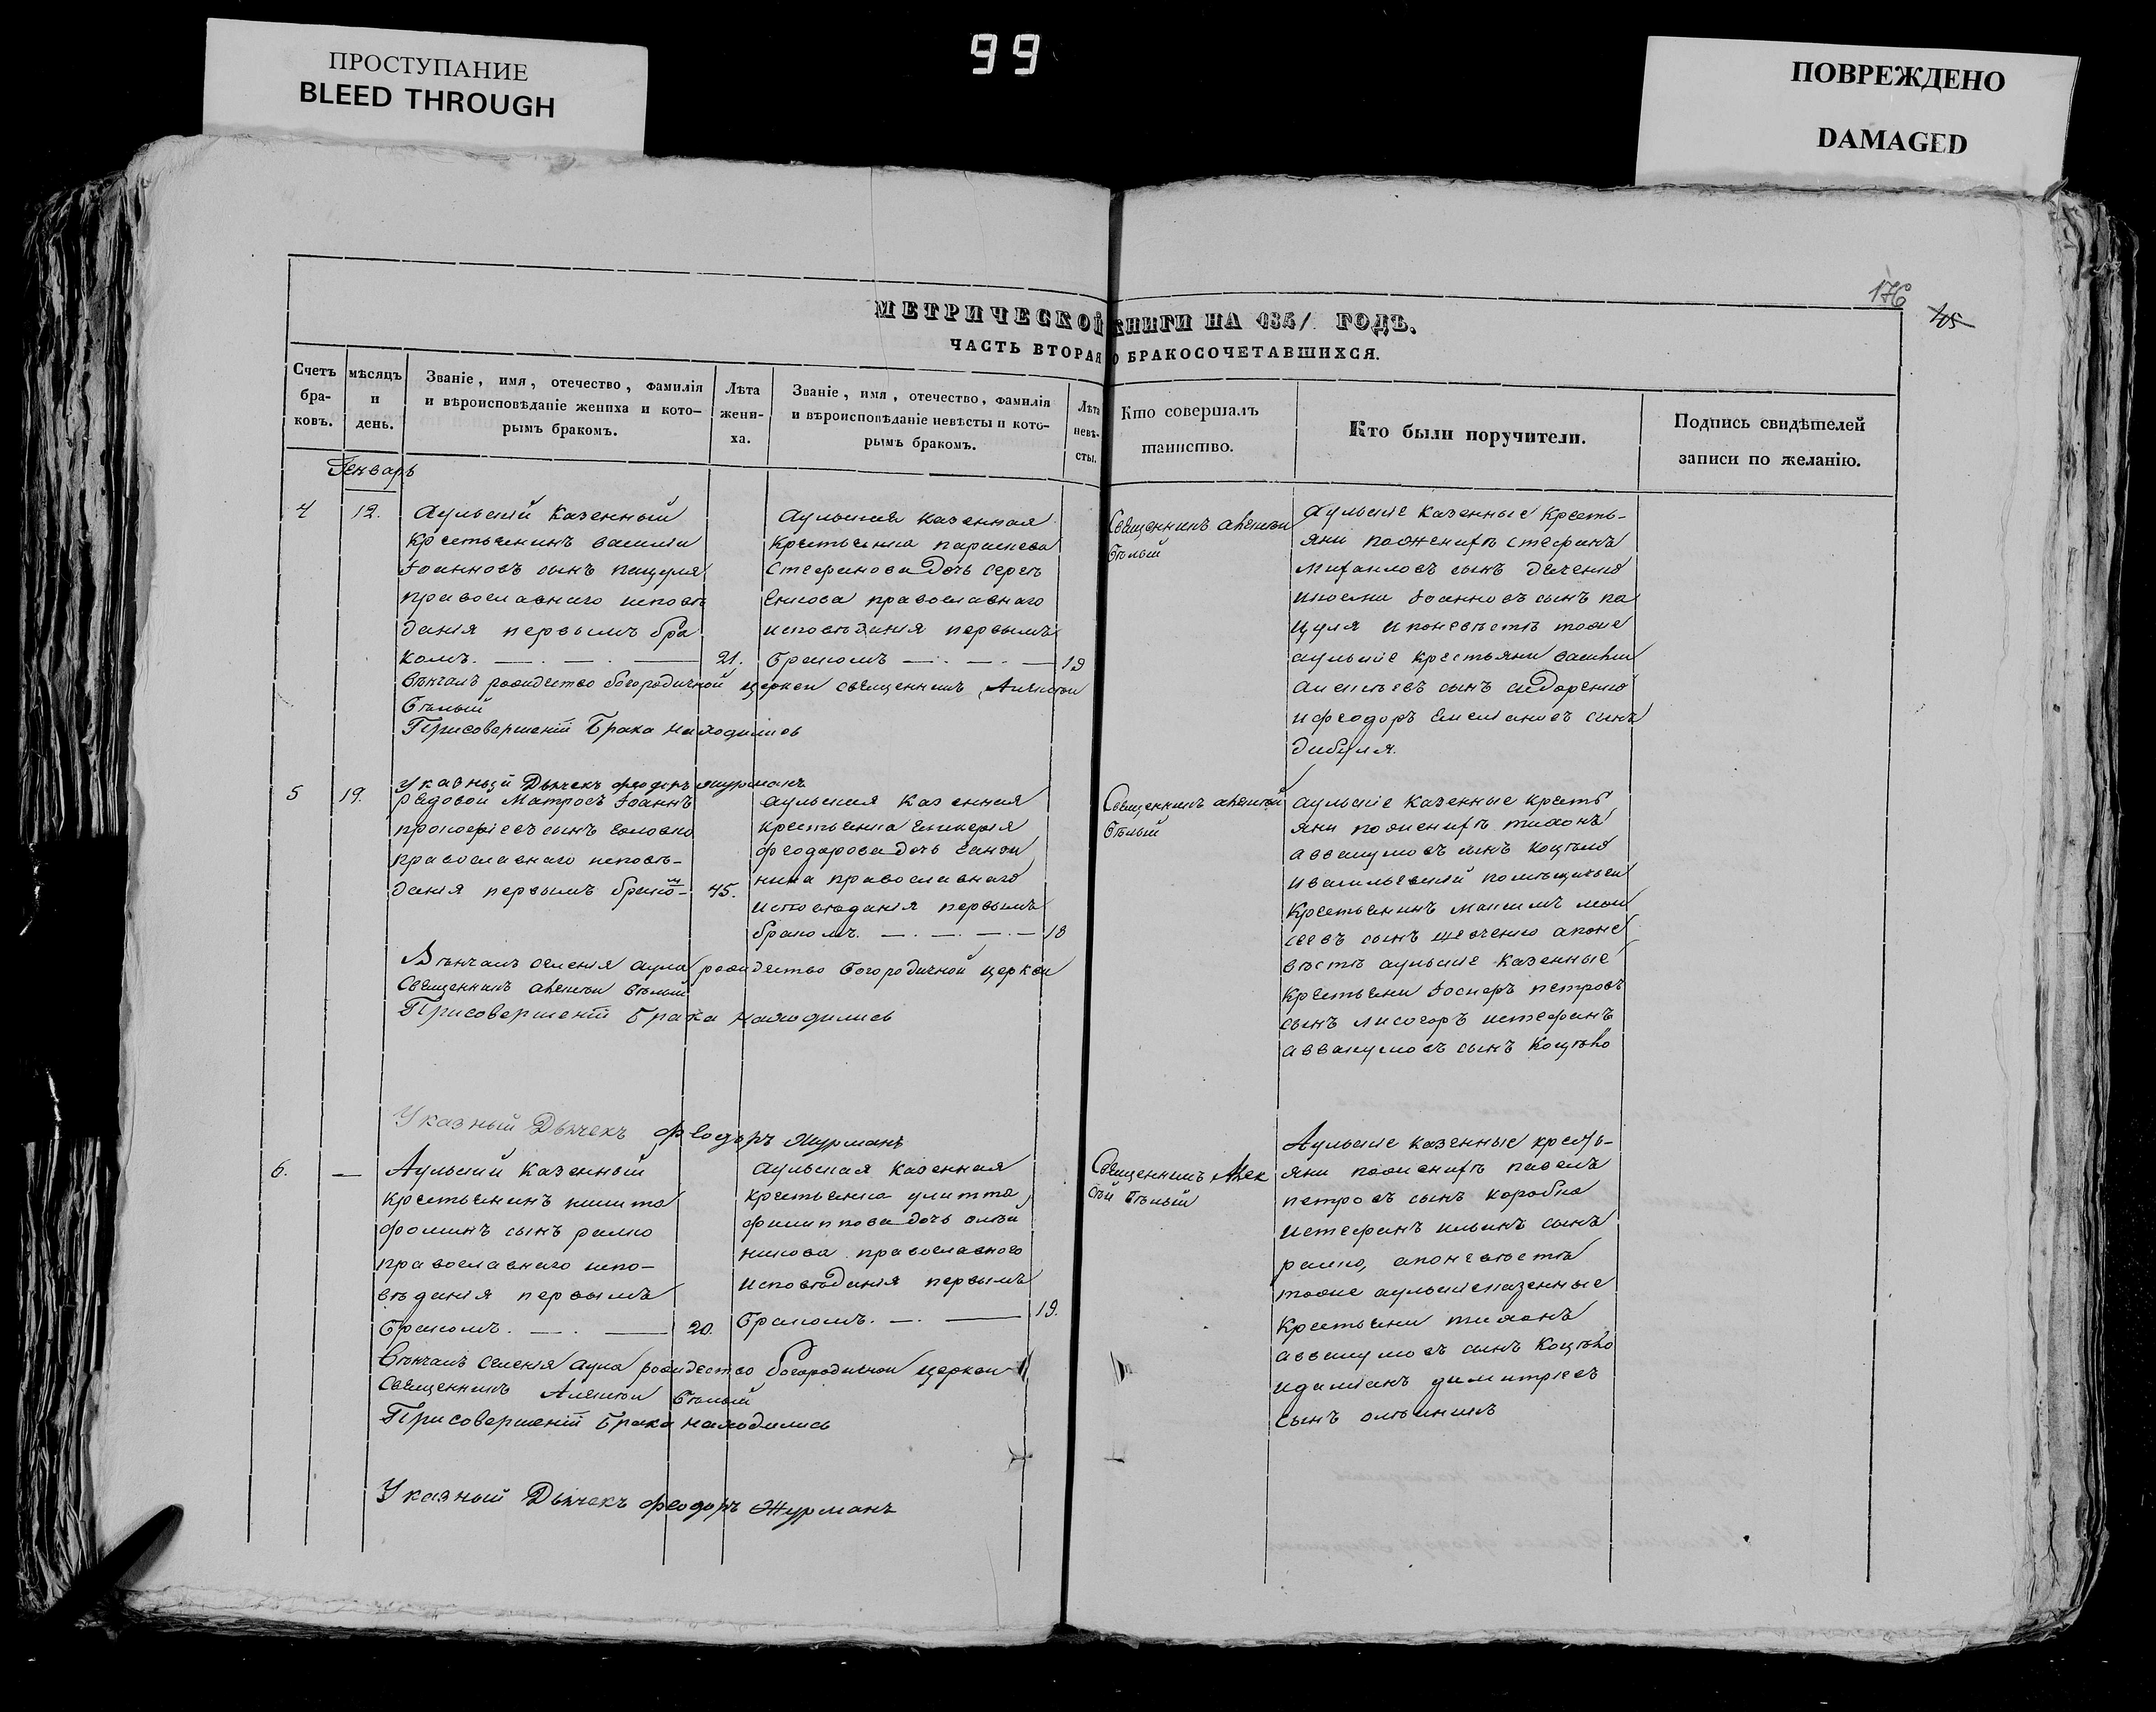 ПРОСТУПАНИЕ
BLEED THROUGH
99
ПОВРЕЖДЕНО
DAMAGED
176
МЕТРИЧЕСКОЙ КНИГИ НА 1841 ГОДЪ.
ЧАСТЬ ВТОРАЯ О БРАКОСОЧЕТАВШИХСЯ.
Счетъ бра-ковъ.
мѣсяцъ и день.
Званіе, имя, отечество, фамилія
и вѣроисповѣданіе жениха и кото-
рымъ бракомъ.
Лѣта жени-ха.
Званіе, имя, отечество, фамилія
и вѣроисповѣданіе невѣсты и кото-
рымъ бракомъ.
Лѣта невѣ-сты.
Кто совершалъ
таинство.
Кто были поручители.
Подпись свидѣтелей
записи по желанію.
Генварь
4
12.
Аульскій казенный
крестьянинъ василій
Іоанновъ сынъ пацуля
православнаго исповѣ
данія первымъ бра
комъ.
21.
Аульская казенная
крестьянка параскева
Стефанова дочь
православнаго
исповѣданія первымъ
бракомъ
19
Священникъ алексѣй
бѣлый
Аульскіе казенные кресть-
яни пожених стефанъ
михаиловъ сынъ
Іоанновъ сынъ па
цуля и поневѣстѣ тоже
аульскіе крестьяни василій
алексѣевъ сынъ сидоренко
ифеодоръ емеліановъ сынъ
дибуля.
Вѣнчалъ рождество богородичной церкви священникъ Алексѣй
бѣлый
Присовершеній Брака находились
Указный Дьячекъ феодоръ журманъ
5
19.
Редовой Матросъ Іоаннъ
прокофіевъ сынъ
православнаго исповѣ-
данія первымъ брако-м
45.
аульская казенная
крестьянка
феодорова дочь
православнаго
исповѣданія первымъ
бракомъ.
18
Священникъ алексѣй
бѣлый
аульскіе казенные кресть
яни пожених тихонъ
аввакумовъ сынъ коцѣко
помѣщичьей
крестьянинъ максимъ мои
сеевъ сынъ шевченко апоне
вѣстѣ аульскіе казенные
крестьяни Іосифъ петровъ
сынъ лисогоръ истефанъ
аввакумовъ сынъ коцѣко
Вѣнчалъ селенія аула рождество богородичной церкви
священникъ алексѣй бѣлый
Присовершеній Брака находились
Указный Дьячекъ феодоръ журманъ
6.
—
Аульскій казенный
крестьянинъ никита
фоминъ сынъ
православнаго испо-
вѣданія первымъ
бракомъ.
20.
аульская казенная
крестьянка улитта
филиппова дочь олѣй
никова православного
исповѣданія первымъ
бракомъ.
19.
Священникъ Алек
сѣй бѣлый
Аульскіе казенные кресть-
яни пожених павелъ
петровъ сынъ коробка
истефанъ ильинъ сынъ
апоневѣстѣ
тоже аульскіе казенные
крестьяни тихонъ
аввакумовъ сынъ коцѣко
идаміанъ димитріевъ
сынъ олѣйникъ
Вѣнчалъ селенія аула рождество богородичной церкви
священникъ Алексѣй бѣлый
Присовершеній Брака находились
Указный Дьячекъ феодоръ журманъ